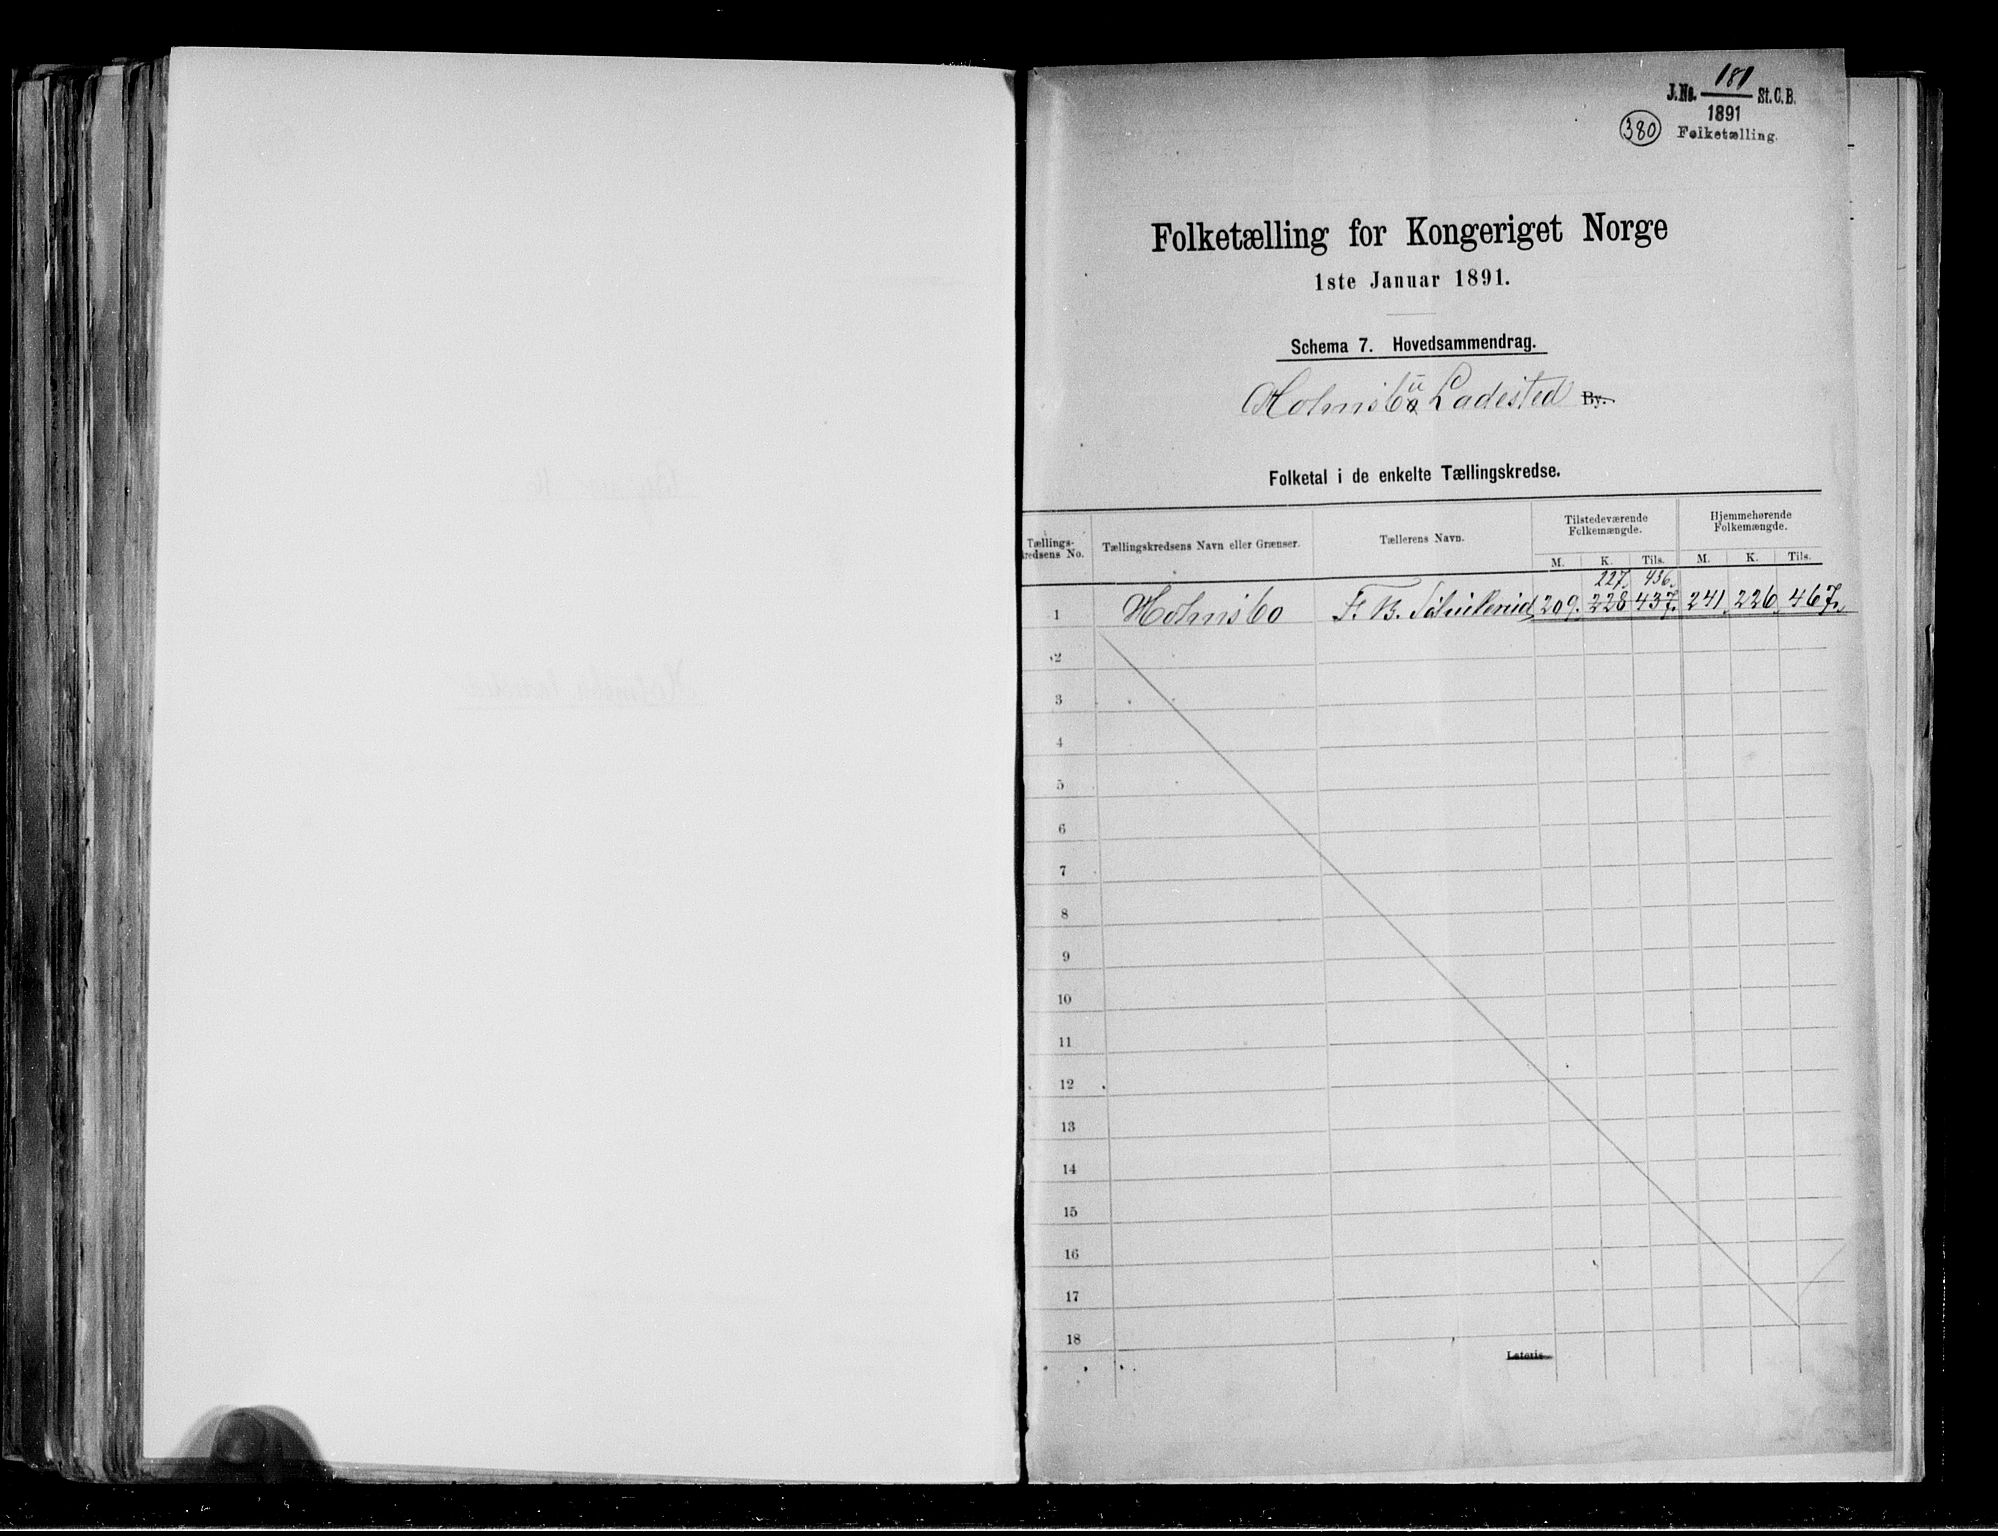 J.No. 181 St.C.B.
1891
380 Folketælling.
Folketælling for Kongeriget Norge
1ste Januar 1891.
Schema 7. Hovedsammendrag.
Holmsbu Ladested By.
Folketal i de enkelte Tællingskredse.
Tællings- kredsens No. Tællingskredsens Navn eller Grænser. Tællerens Navn. Tilstedeværende Folkemængde. Hjemmehørende Folkemængde.
M. K. Tils. M. K. Tils.
227. 436.
1 Holmsbo F. B. 209. 228 437. 241. 226. 467.
2
3
4
5
6
7
8
9
10
11
12
13
14
15
16
17
18
Lateris